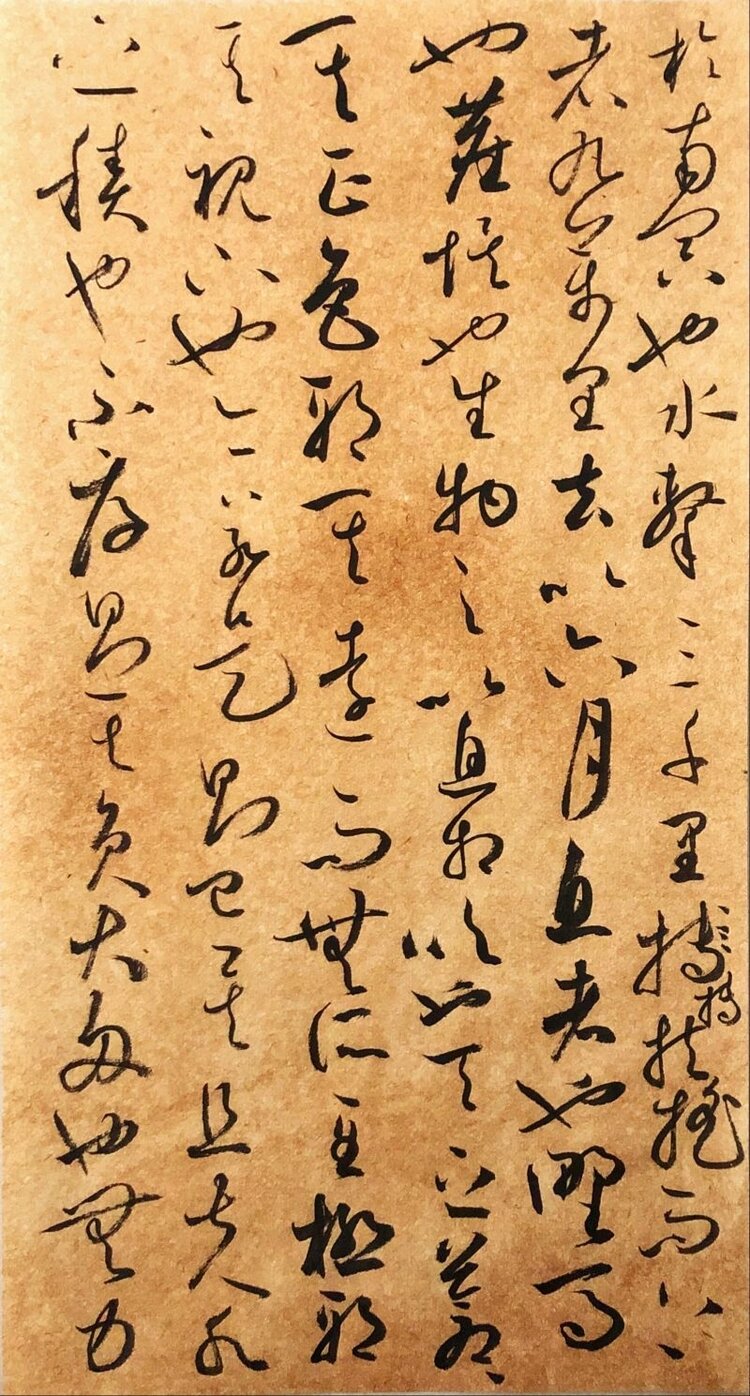 於南冥也水擊三千里搏摶扶搖而上
者九萬里去以六月息者也野馬
也塵埃也生物之以息相吹也天之蒼蒼
其正色邪其遠而無所至極邪
其視下也亦若是則已矣且夫水
之積也不厚則其負大舟也無力